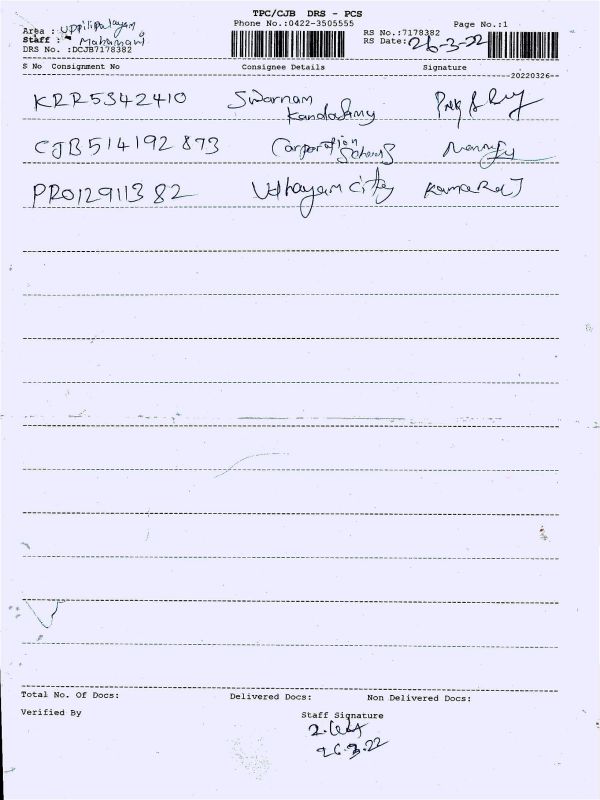 TPC/CJB DRS - PCS
Area : Uppilipalayam
Phone No.:0422-3505555
Page No.:1
Staff :
RS No.:7178382
DRS No. :DCJB7178382
RS Date: 26-3-22
S No Consignment No Consignee Details Signature
20220326
KRR5342410 Swarnam
Kandasamy
CJB514192873 Corporation
PR012911382 Uthayam city Kamaraj
Total No. Of Docs: Delivered Docs: Non Delivered Docs:
Verified By Staff Signature
26.3.22